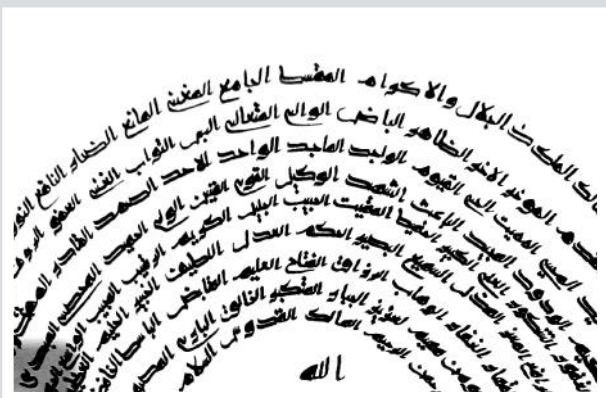 الملك ذ الجلال والاكرام المقسط الجامع المغني المانع الضار النافع النور
الموخر الاخر الظاهر الباطن الوالي المتعالي البر التواب الغني العفو الروف
المميت الحي القيوم الواجد الماجد الواحد الاحد الصمد القادر
الودود المجيد الباعث الشهيد الوكيل القوي المتين الولي الحميد المحصي
الشكور العلي الكبير الحفيظ المقيت الحسيب الجليل الكريم الرقيب المجيب الواسع
المعز المذل السميع البصير الحكم العدل اللطيف الخبير الحليم
الغفار القهار الوهاب الرزاق الفتاح العليم القابض الباسط الخافض
العزيز الجبار المتكبر الخالق الباري المصور
الرحيم المالك القدوس السلام
الله